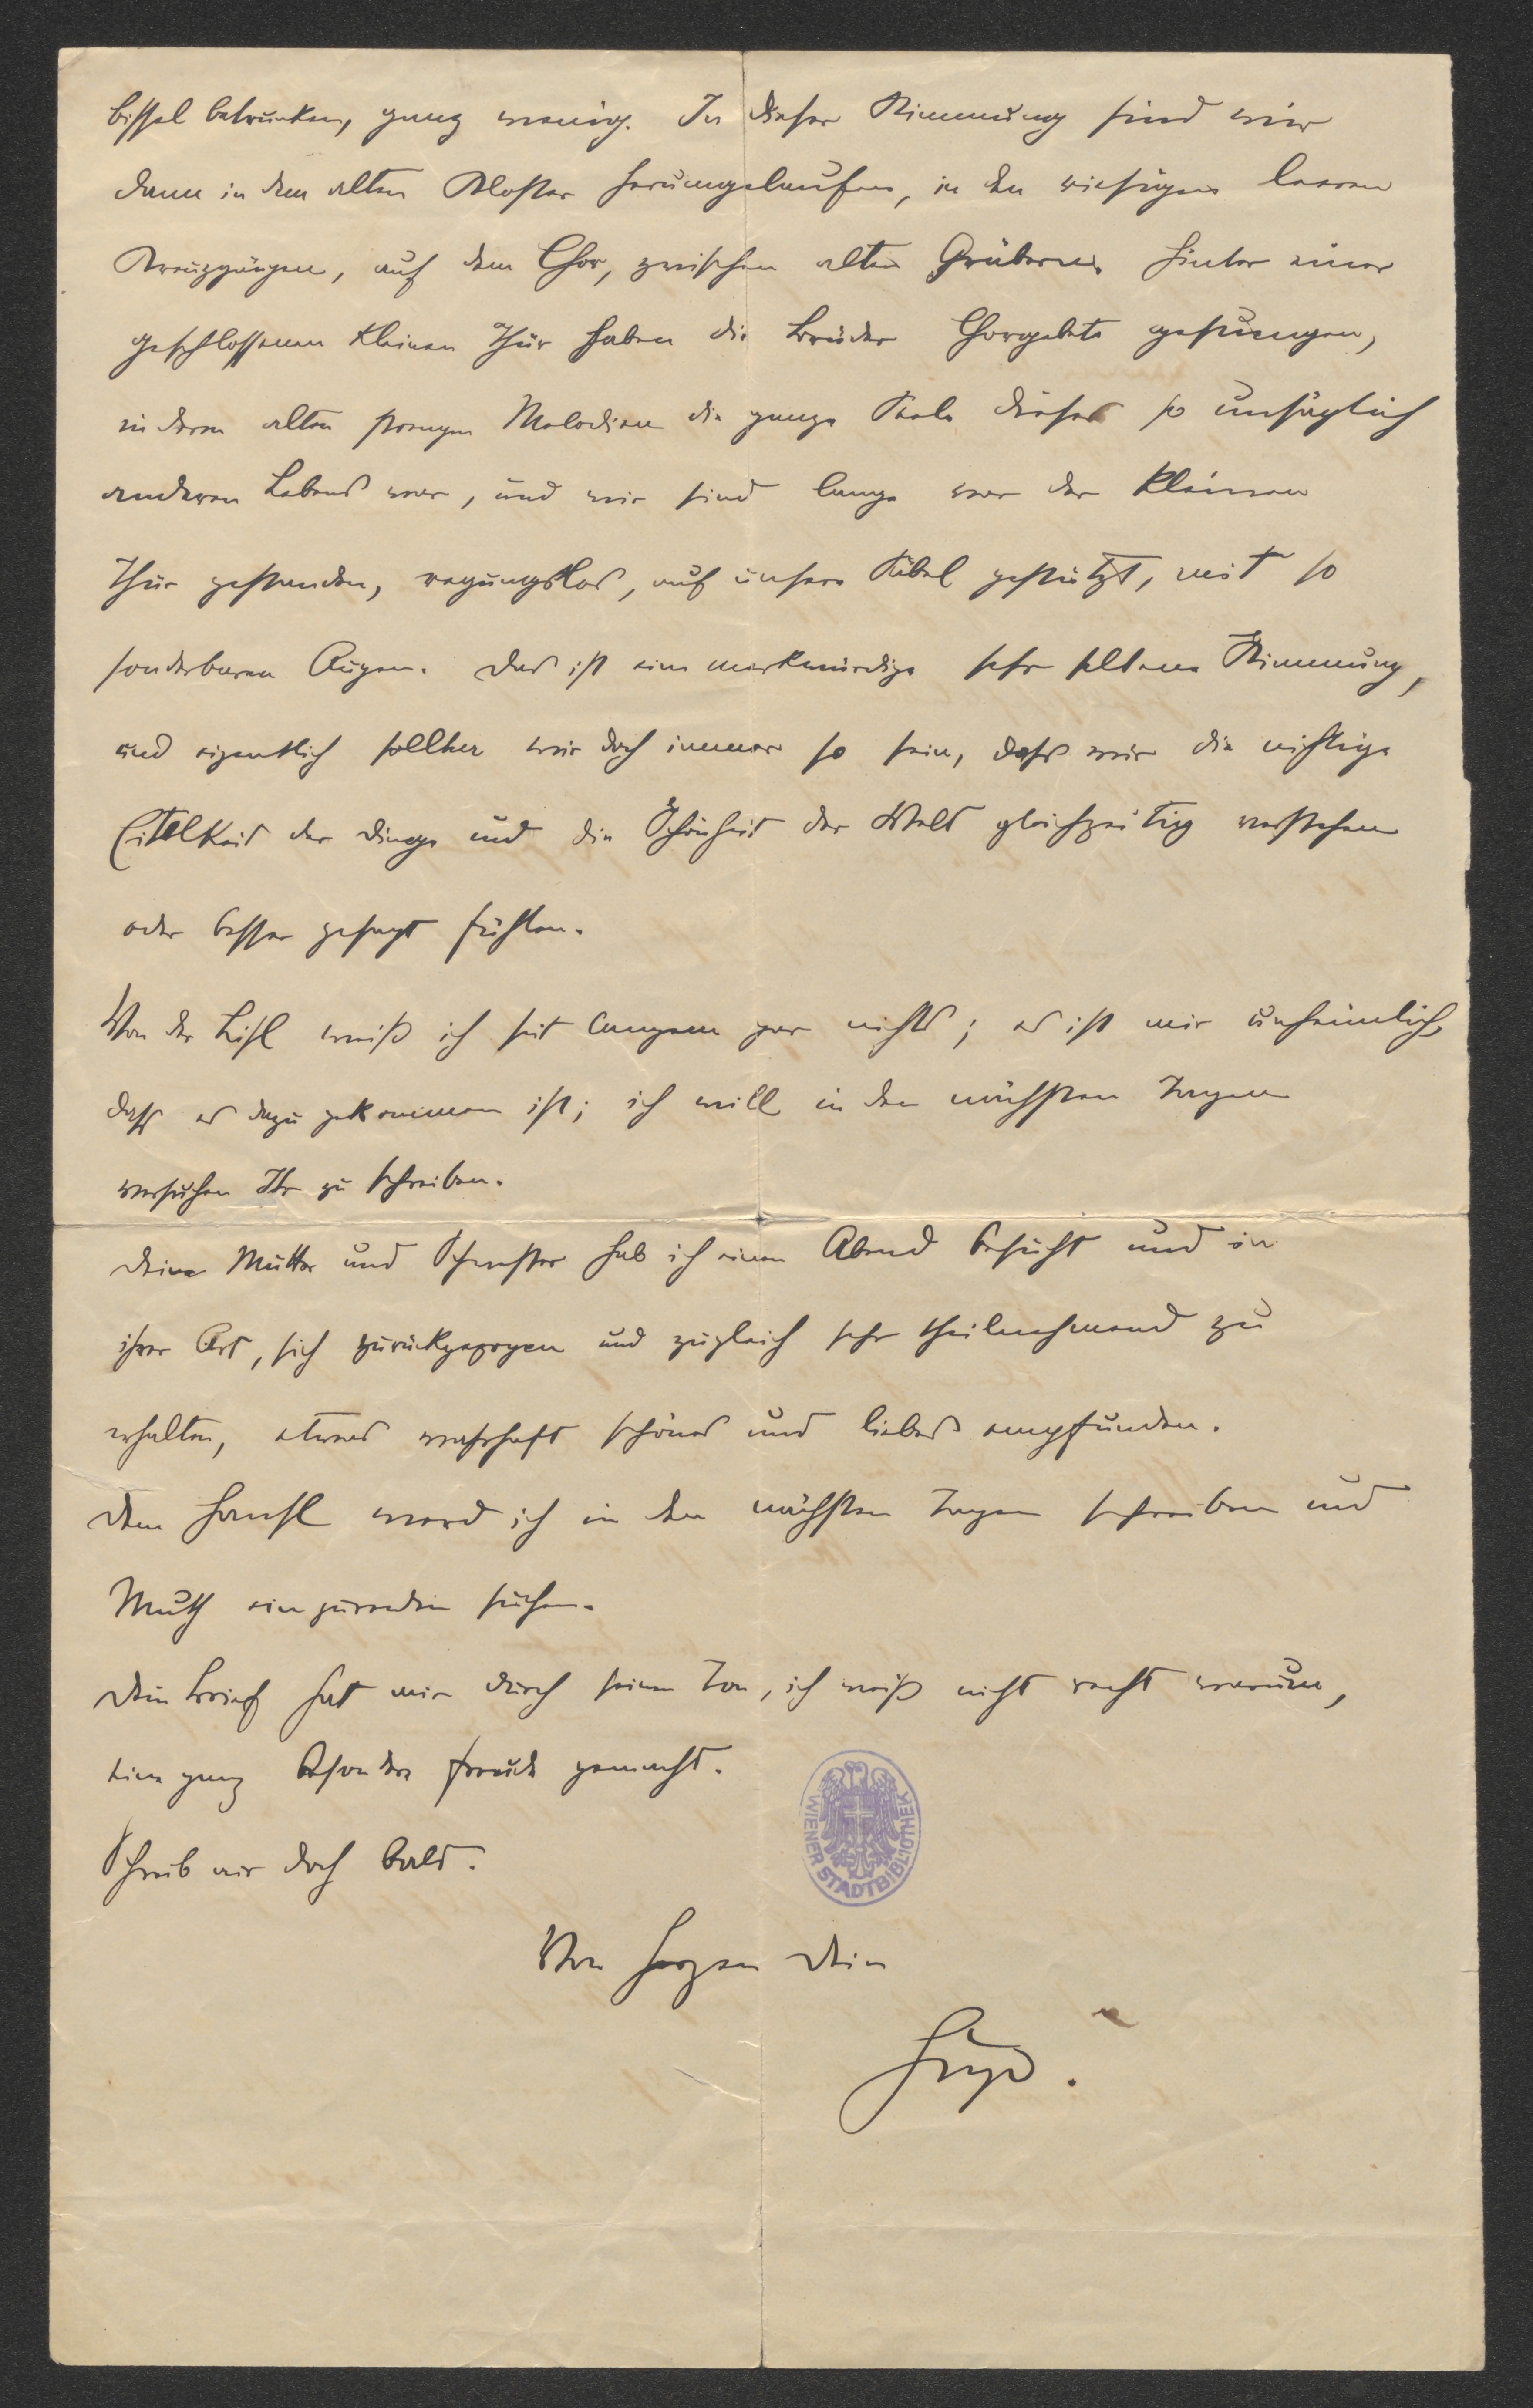 bissel betrunken, ganz wenig. In dieser Stimmung sind wir
dann in dem alten Kloster herumgelaufen, in den riesigen leeren
Kreuzgängen, auf dem Chor, zwischen alten Gräbern. Hinter einer
geschlossenen kleinen Thür haben die Brüder Chorgebete gesungen,
in deren alten strengen Melodien die ganze Seele dieses so unsäglich
anderen Lebens war, und wir sind lange vor der kleinen
Thür gestanden, regungslos, auf unsere Säbel gestützt, mit so
sonderbaren Augen. Das ist eine merkwürdige sehr seltene Stimmung,
und eigentlich sollten wir doch immer so sein, dass wir die nichtige
Eitelkeit der Dinge und die Schönheit der Welt gleichzeitig verstehen
oder besser gesagt fühlen.
Von der Lisl weiß ich seit langem gar nichts; es ist mir unheimlich,
dass es dazu gekommen ist; ich will in den nächsten Tagen
versuchen Ihr zu schreiben.
Deine Mutter und Schwester hab ich einen Abend besucht und in
ihrer Art, sich zurückgezogen und zugleich sehr theilnehmend zu
erhalten, etwas wahrhaft schönes und liebes empfunden.
Dem Hansl werd ich in den nächsten Tagen schreiben und
Muth einzureden suchen.
Dein Brief hat mir durch seinen Ton, ich weiß nicht recht warum,
eine ganz besondere Freude gemacht.
Schreib mir doch bald.
Von Herzen Dein
Hugo.
WIENER STADTBIBLIOTHEK